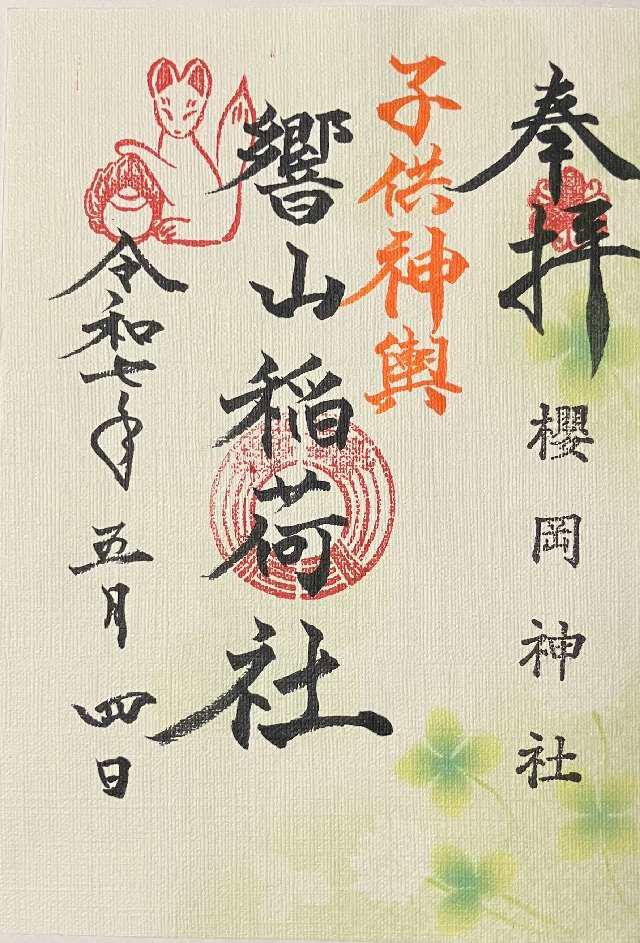 奉拝
櫻岡神社
子供神輿
響山稲荷社
令和七年五月四日